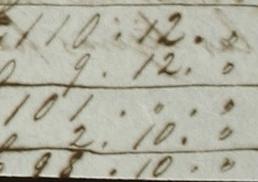 110 . 12 . 0
9 . 12 . 0
101 . 0 . 0
2 . 10 . 0
98 . 10 . 0